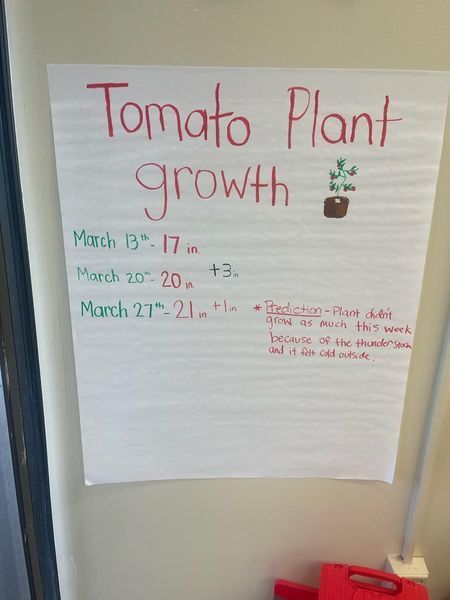 Tomato Plant
growth
March 13th - 17 in.
March 20th - 20 in +3 in
March 27th - 21 in +1 in
* Prediction - Plant didn't
grow as much this week
because of the thunderstorm
and it felt cold outside.